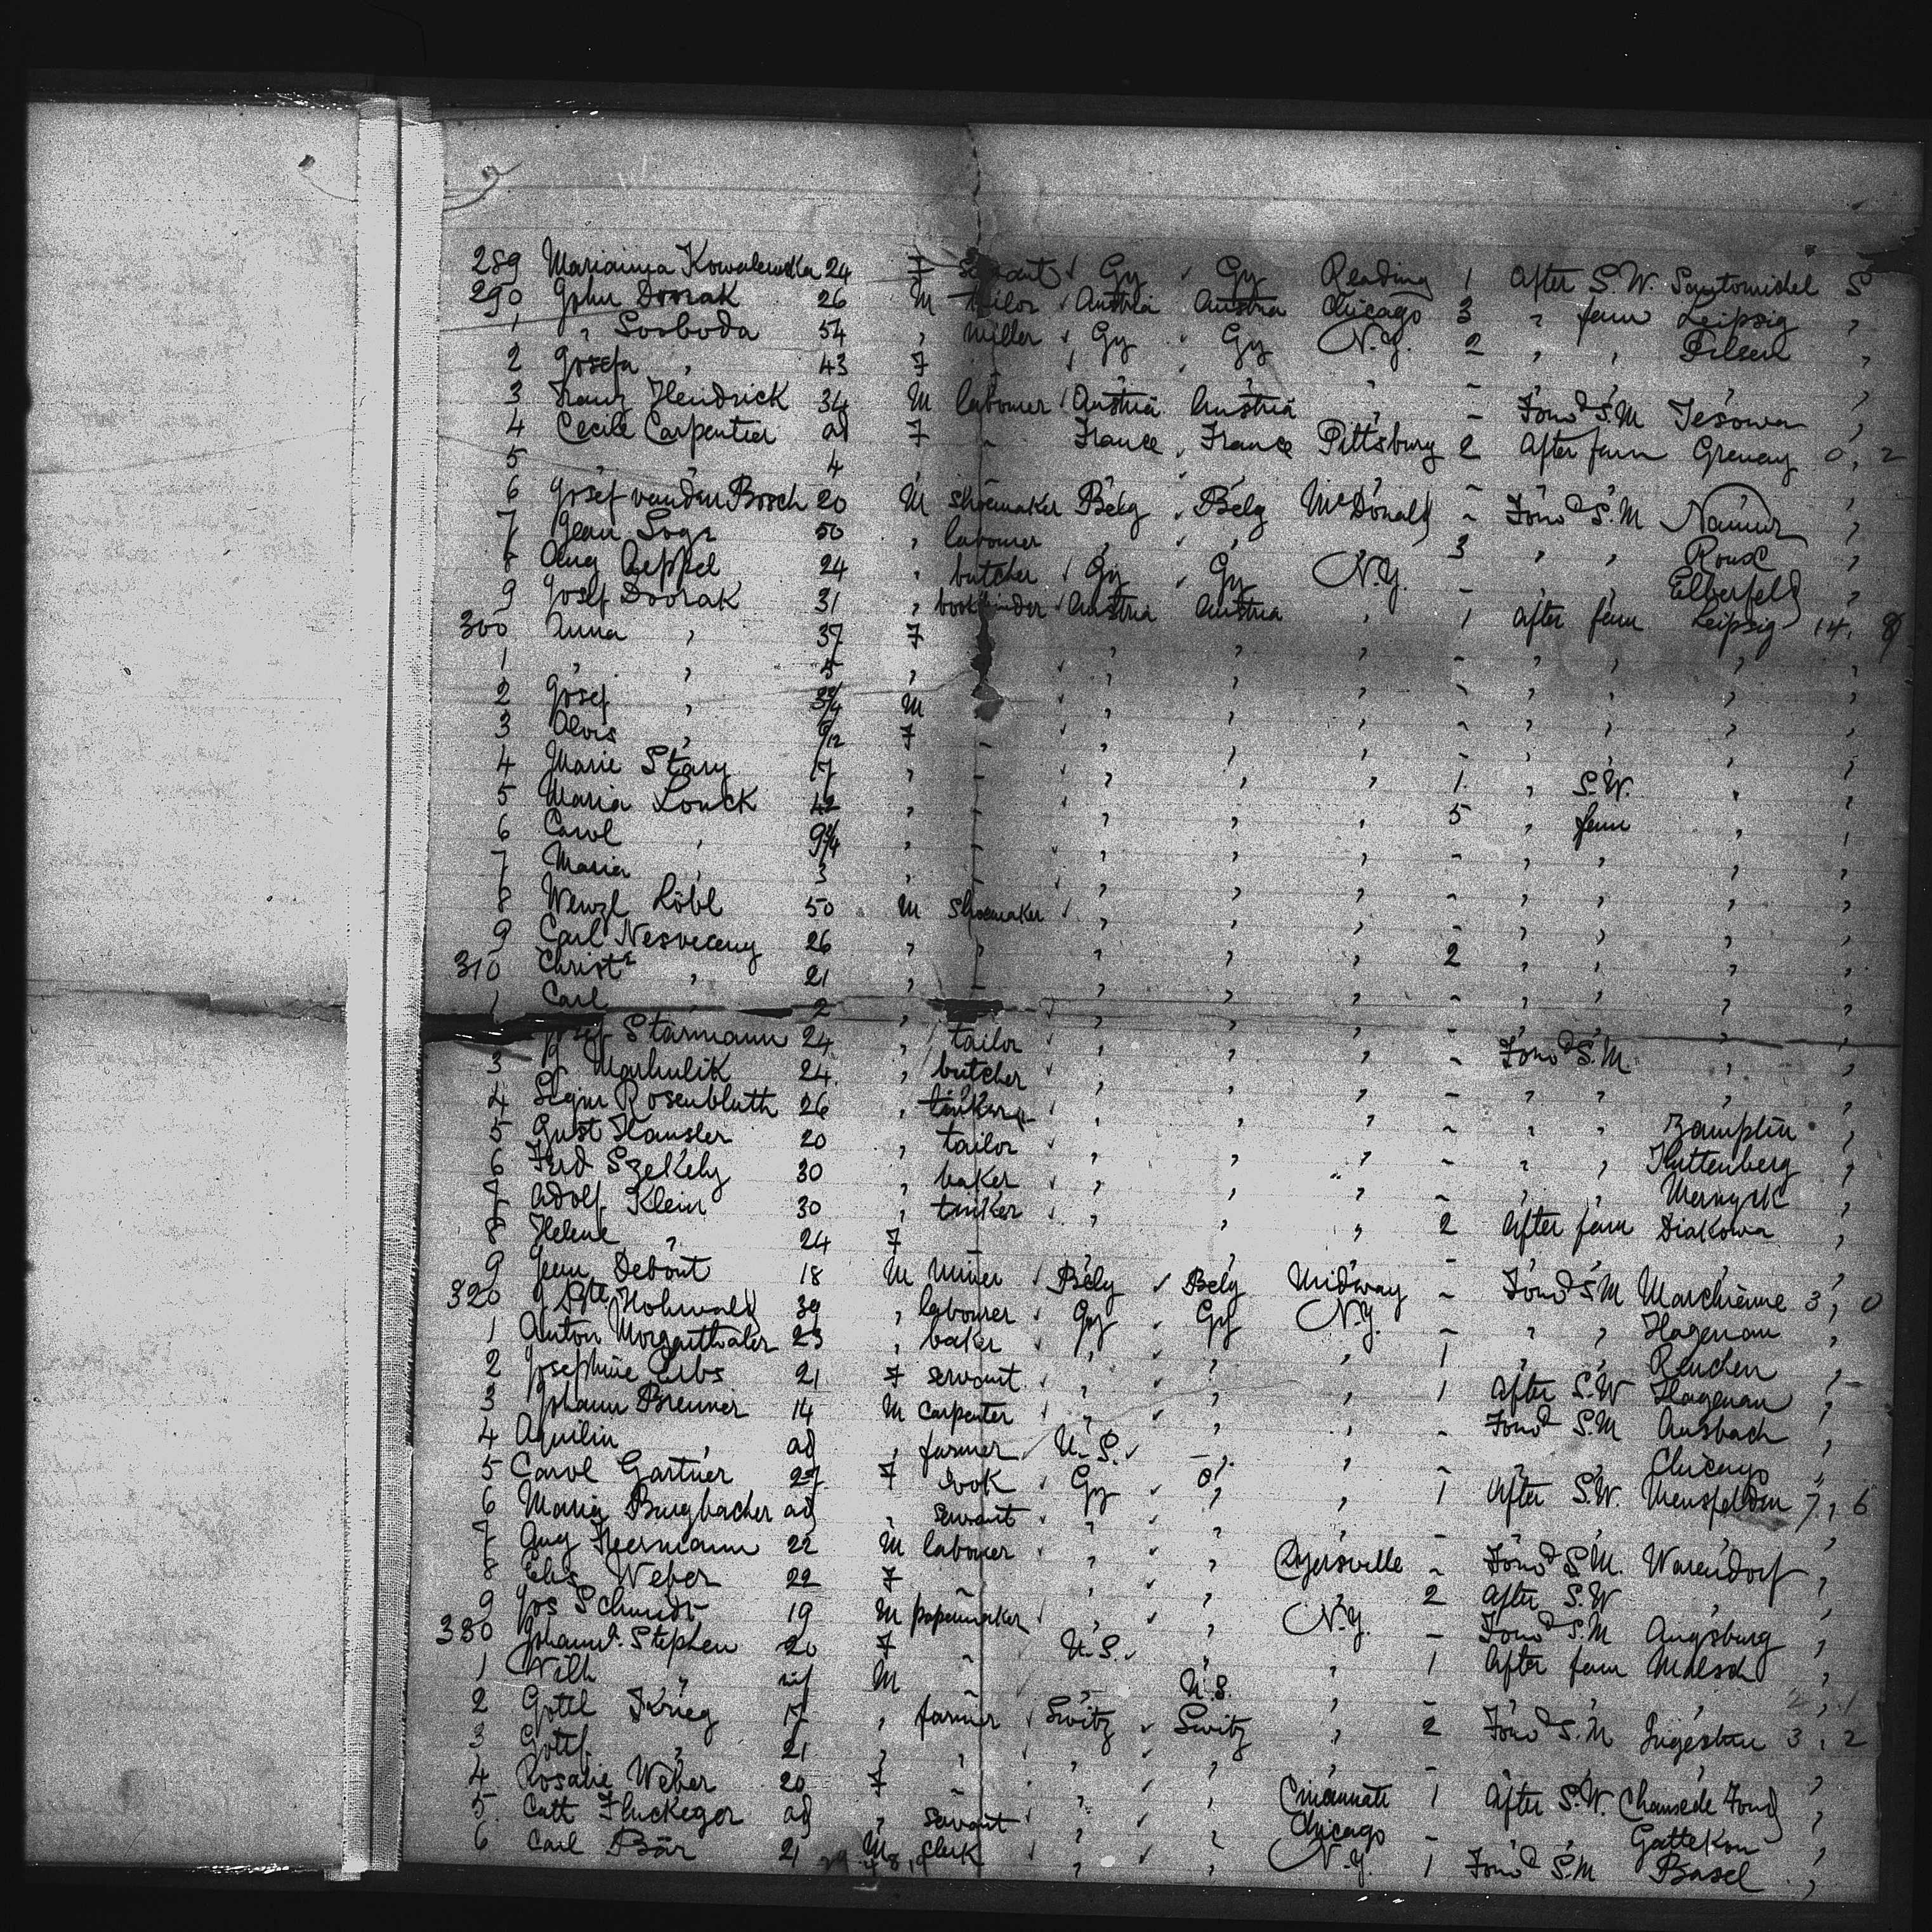 289 Marianna Kowalewska 24 F servant Gy Gy Reading 1 After S.W. Santomichel S
290 John Dvorak 26 M tailor Austria Austria Chicago 3 " fem Leipzig "
1 " Svoboda 54 " miller Gy Gy N.Y. 2 " " Pilsen "
2 Josefa " 43 F - " " " - " " " "
3 Franz Hendrick 34 M labourer Austria Austria " - Forwd S.M Jesowa "
4 Cecile Carpentier ad F - France France Pittsburg 2 After fem Grenay 0, 2
5 " " 4 " " " " - " " " "
6 Josef van den Bosch 20 M shoemaker Belg Belg McDonald - Forwd S.M Namur "
7 Jean Loge 50 " labourer " " " 3 " " Roux "
8 Aug Aeppel 24 " butcher Gy Gy N.Y. - " " Elberfeld "
9 Josef Dvorak 31 " bookbinder Austria Austria " 1 After fem Leipzig 14, 8
300 Anna " 37 F " " " - " " " "
1 " " 5 " " " " - " " " "
2 Josef " 2¾ M " " " - " " " "
3 Alois " 9/12 F - " " " - " " " "
4 Marie Stary 17 " - " " " 1 " S.W. " "
5 Maria Louck 42 " - " " " 5 " fem " "
6 Carol " 9¾ " - " " " - " " " "
7 Maria " 3 " - " " " - " " " "
8 Wenzl Löbl 50 M shoemaker " " " - " " " "
9 Carl Nesveceny 26 " " " " " 2 " " " "
310 Christe " 21 " - " " " - " " " "
1 Carl " 2 " " " " - " " " "
Josef Starmann 24 " tailor " " " - Forwd S.M. " "
3 Marhulik 24 " butcher " " " - " " " "
4 Sigm Rosenbluth 26 " tinker " " " - " " Zamplin "
5 Gust Hansler 20 " tailor " " " - " " Huttenberg "
6 Ferd Szekely 30 " baker " " " - " " Mernyik "
7 Adolf Klein 30 " tinker " " " 2 After fem Diakowa "
8 Helene " 24 F - " " " - " " " "
9 Jean Debout 18 M Miner Belg Belg Midway - Forwd S.M Marchienne 3, 0
320 Hohwald 39 " labourer Gy Gy N.Y. - " " Hagenau "
1 Anton Morgenthaler 23 " baker " " " 1 " " Renchen "
2 Josephine Erbs 21 F servant " " " 1 After S.W Hagenau "
3 Johann Brenner 14 M carpenter " " " - Forwd S.M Ansbach "
4 Aquilin " ad " farmer U.S. - " - " " Chicago "
5 Carol Gartner 27 F cook Gy " 1 After S.W. Mensfelden 7, 6
6 Maria Burgbacher ad " servant " " " - " " " "
7 Aug Heermann 22 M labourer " " Dyersville - Forwd S.M. Warendorf "
8 Elis Weber 22 F - " " " 2 After S.W " "
9 Jos Schmidt 19 M papermaker " " N.Y. - Forwd S.M Augsburg "
330 Johanna Stephen 20 F - U.S. " " 1 After fem Malsch "
1 Wilh " inf M - " U.S. " - " " " "
2 Gottl Krieg 17 " farmer Switz Switz " 2 Forwd S.M 3, 2
3 Gottf " 21 " " " " " - " " " "
4 Rosalie Weber 20 F - " " Cincinnati 1 After S.W. Chaux de Fond "
5 Cath Fluckeger ad " servant " " Chicago - " " Gattekon "
6 Carl Bär 21 M clerk " " N.Y. 1 Forwd S.M Basel "